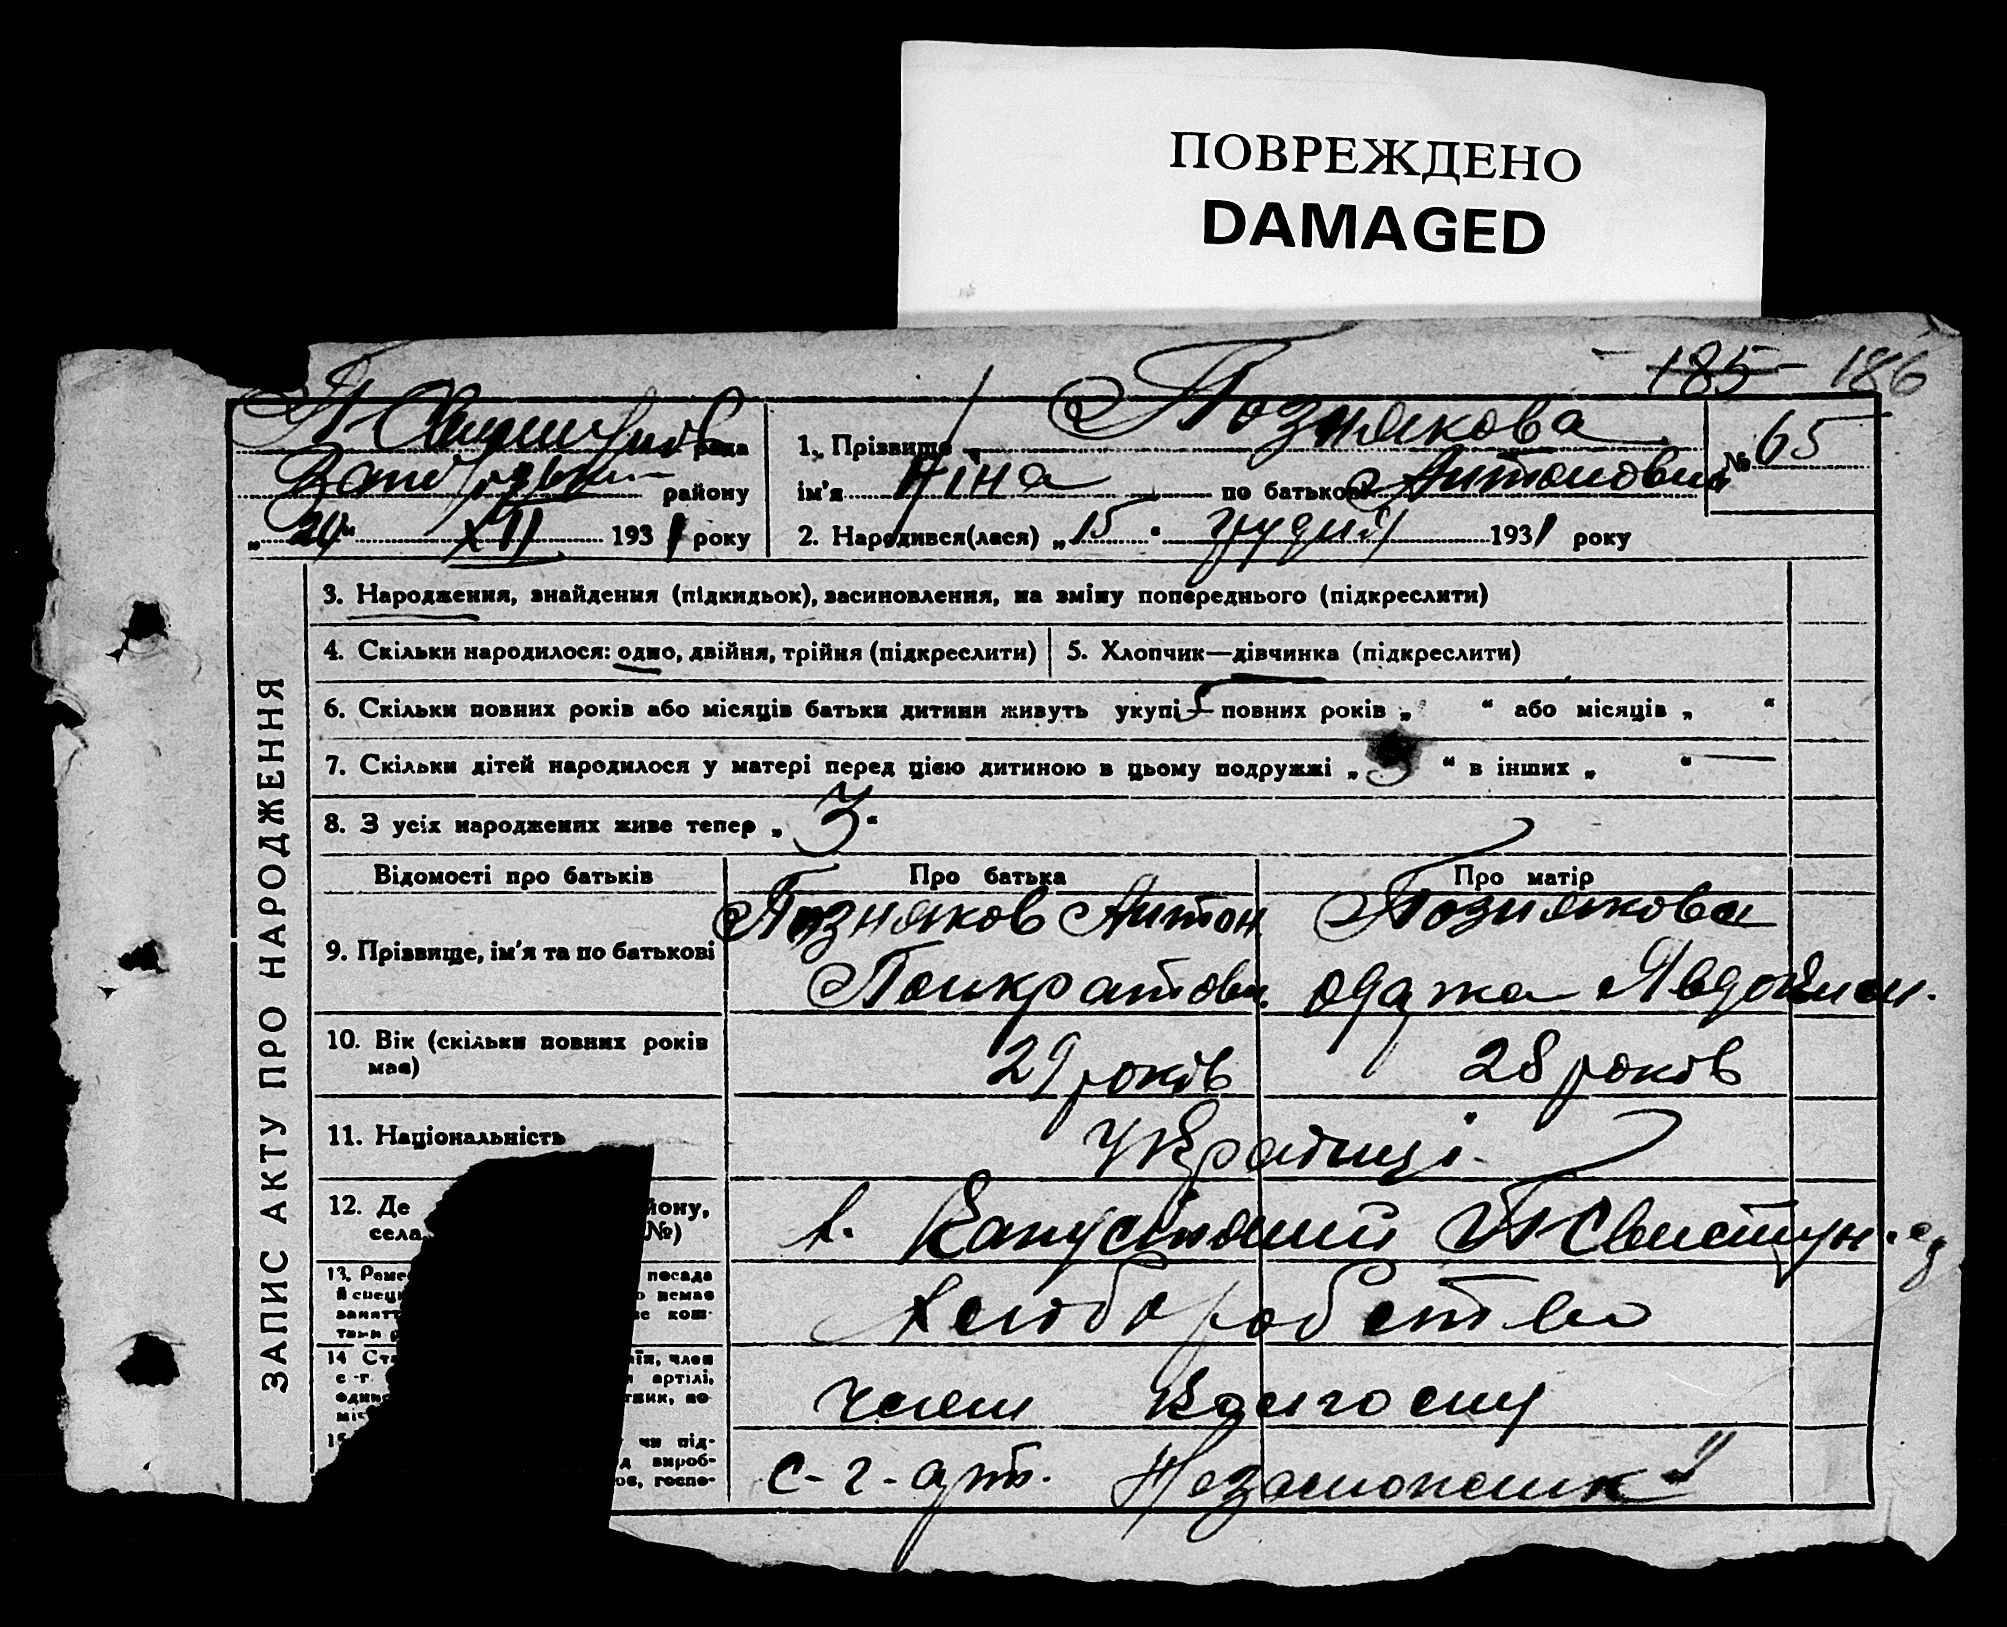 ПОВРЕЖДЕНО
DAMAGED
185 186
рада
району
„20“ XII 1931 року
1. Прізвище Познякова
ім'я Ніна по батькові Антоновна
№ 65
2. Народився(лася) „15“ грудня 1931 року
ЗАПИС АКТУ ПРО НАРОДЖЕННЯ
3. Народження, знайдення (підкидьок), засиновлення, на зміну попереднього (підкреслити)
4. Скільки народилося: одно, двійня, трійня (підкреслити)
5. Хлопчик—дівчинка (підкреслити)
6. Скільки повних років або місяців батьки дитини живуть укупі 5 повних років „ “ або місяців „ “
7. Скільки дітей народилося у матері перед цією дитиною в цьому подружжі „3“ в інших „ “ —
8. З усіх народжених живе тепер „3“
Відомості про батьків
Про батька
Про матір
9. Прізвище, ім'я та по батькові
Позняков Антон
Познякова
10. Вік (скільки повних років
має)
29 років
28 років
11. Національність
Українці
12. Де йону,
села №)
Капустяний П Свистун.
13. Реме посада
й спеці о немає
занятт кош-
тами
Хліборобство
14 Ста їн, член
с-г артілі,
один тник, по-
міс
член колгоспу
15 чи під-
д вироб-
ов, госпо-
с-г-арт. Незаможник"